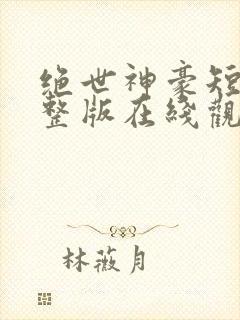 绝世神豪短
整版在綫觀
林薇月